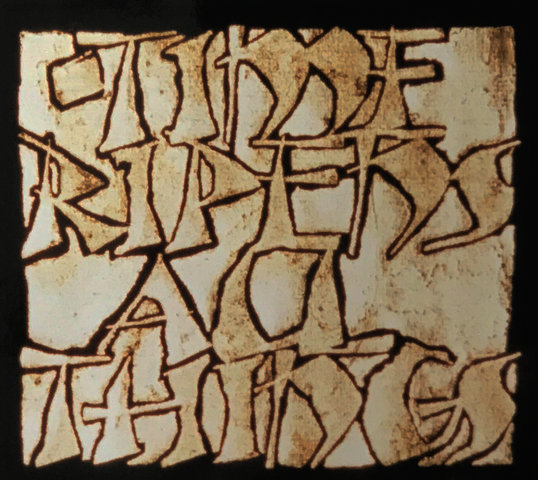 TIME
RIPENS
ALL
THINGS